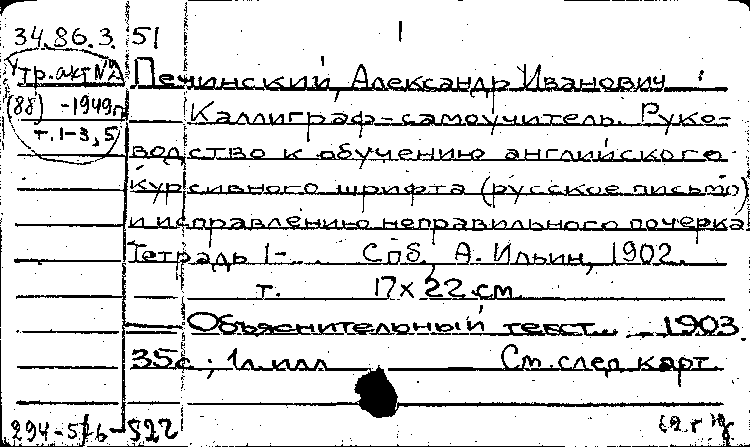 34.86.3. 51 1
Утр. акт №2 Печинский, Александр Иванович
(88) -1949г. Каллиграф-самоучитель. Руко-
т. 1-3, 5
водство к обучению английского
курсивного шрифта (русское письмо)
и исправлению неправильного почерка
Тетрадь 1-... Спб, А. Ильин, 1902.
т. 17х22 см
Объяснительный текст... 1903.
35с.; 1л. илл См. след. карт.
522